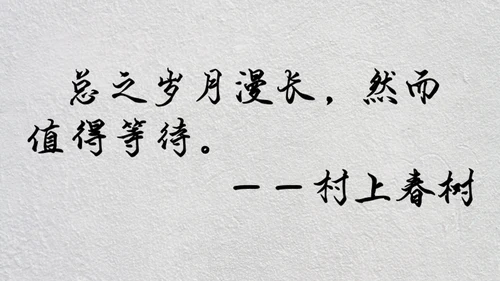 总之岁月漫长，然而
值得等待。
——村上春树